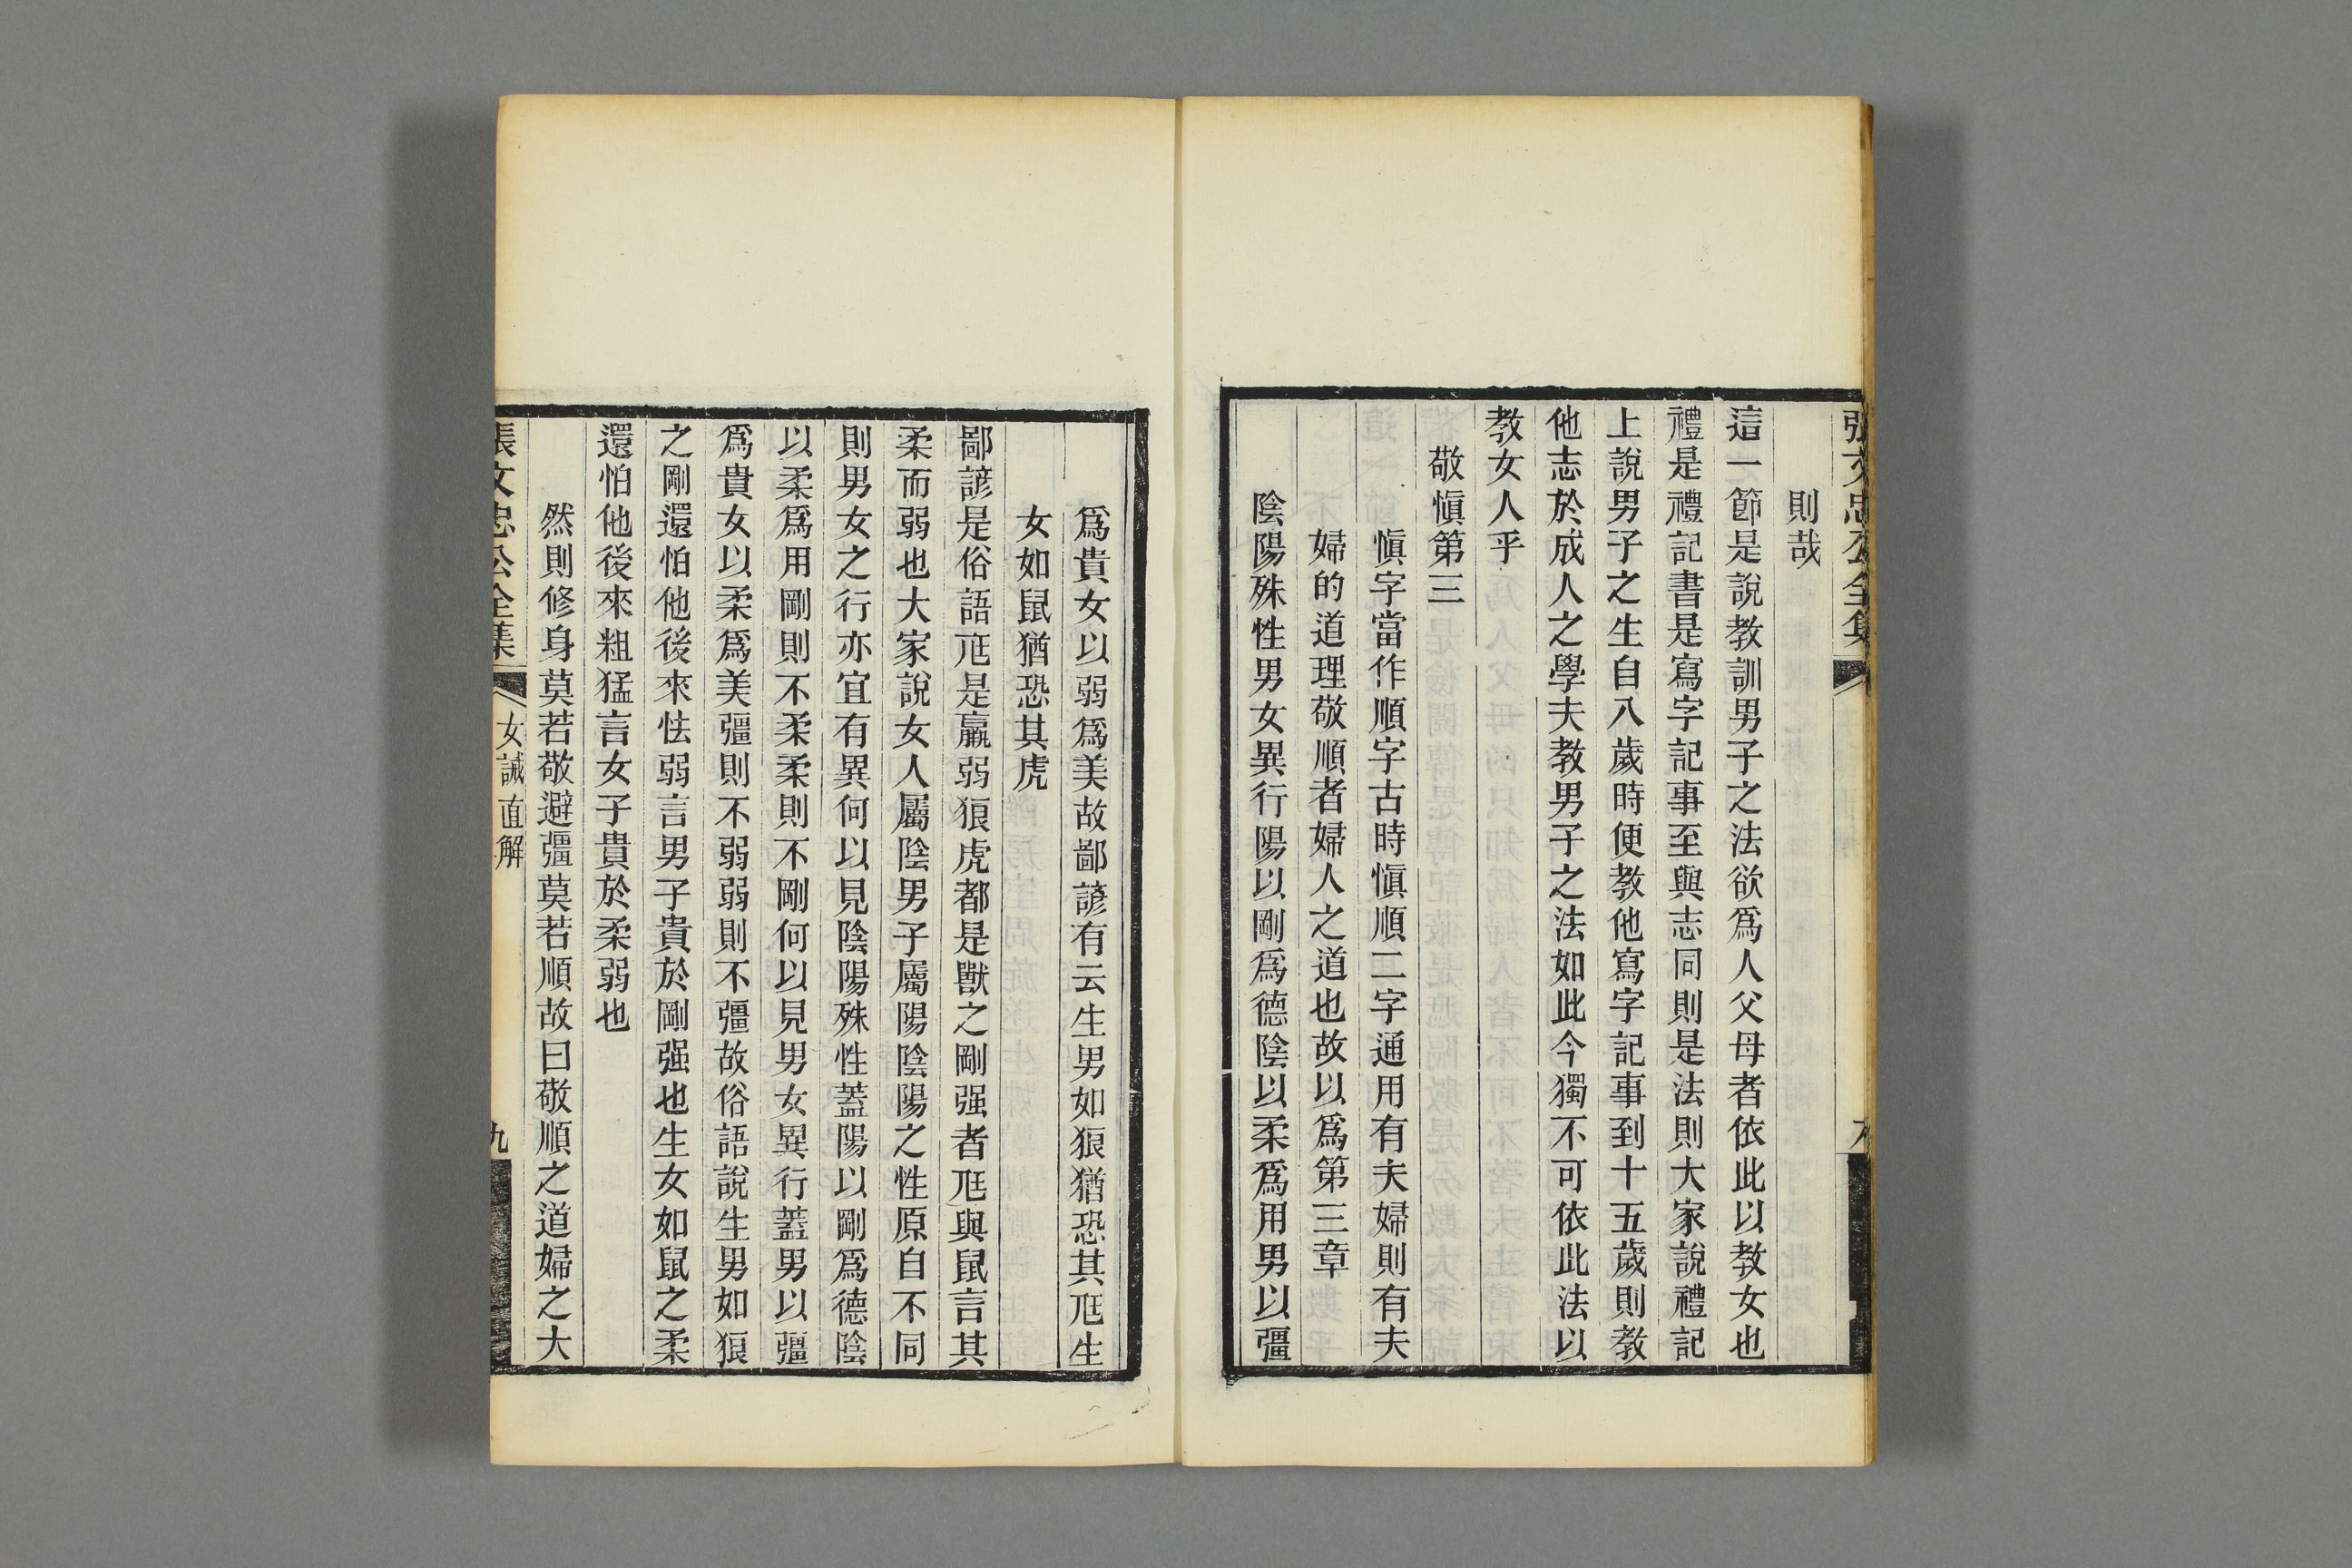 張文忠公全集
則哉
這一節是說教訓男子之法欲爲人父母者依此以教女也
禮是禮記書是寫字記事至與志同則是法則大家說禮記
上說男子之生自八歲時便教他寫字記事到十五歲則教
他志於成人之學夫教男子之法如此今獨不可依此法以
教女人乎
敬愼第三
愼字當作順字古時愼順二字通用有夫婦則有夫
婦的道理敬順者婦人之道也故以爲第三章
陰陽殊性男女異行陽以剛爲德陰以柔爲用男以彊
爲貴女以弱爲美故鄙諺有云生男如狼猶恐其尫生
女如鼠猶恐其虎
鄙諺是俗語尫是羸弱狼虎都是獸之剛强者尫與鼠言其
柔而弱也大家說女人屬陰男子屬陽陰陽之性原自不同
則男女之行亦宜有異何以見陰陽殊性蓋陽以剛爲德陰
以柔爲用剛則不柔柔則不剛何以見男女異行蓋男以彊
爲貴女以柔爲美彊則不弱弱則不彊故俗語說生男如狼
之剛還怕他後來怯弱言男子貴於剛强也生女如鼠之柔
還怕他後來粗猛言女子貴於柔弱也
然則修身莫若敬避彊莫若順故曰敬順之道婦之大
張文忠公全集 女誡直解 九